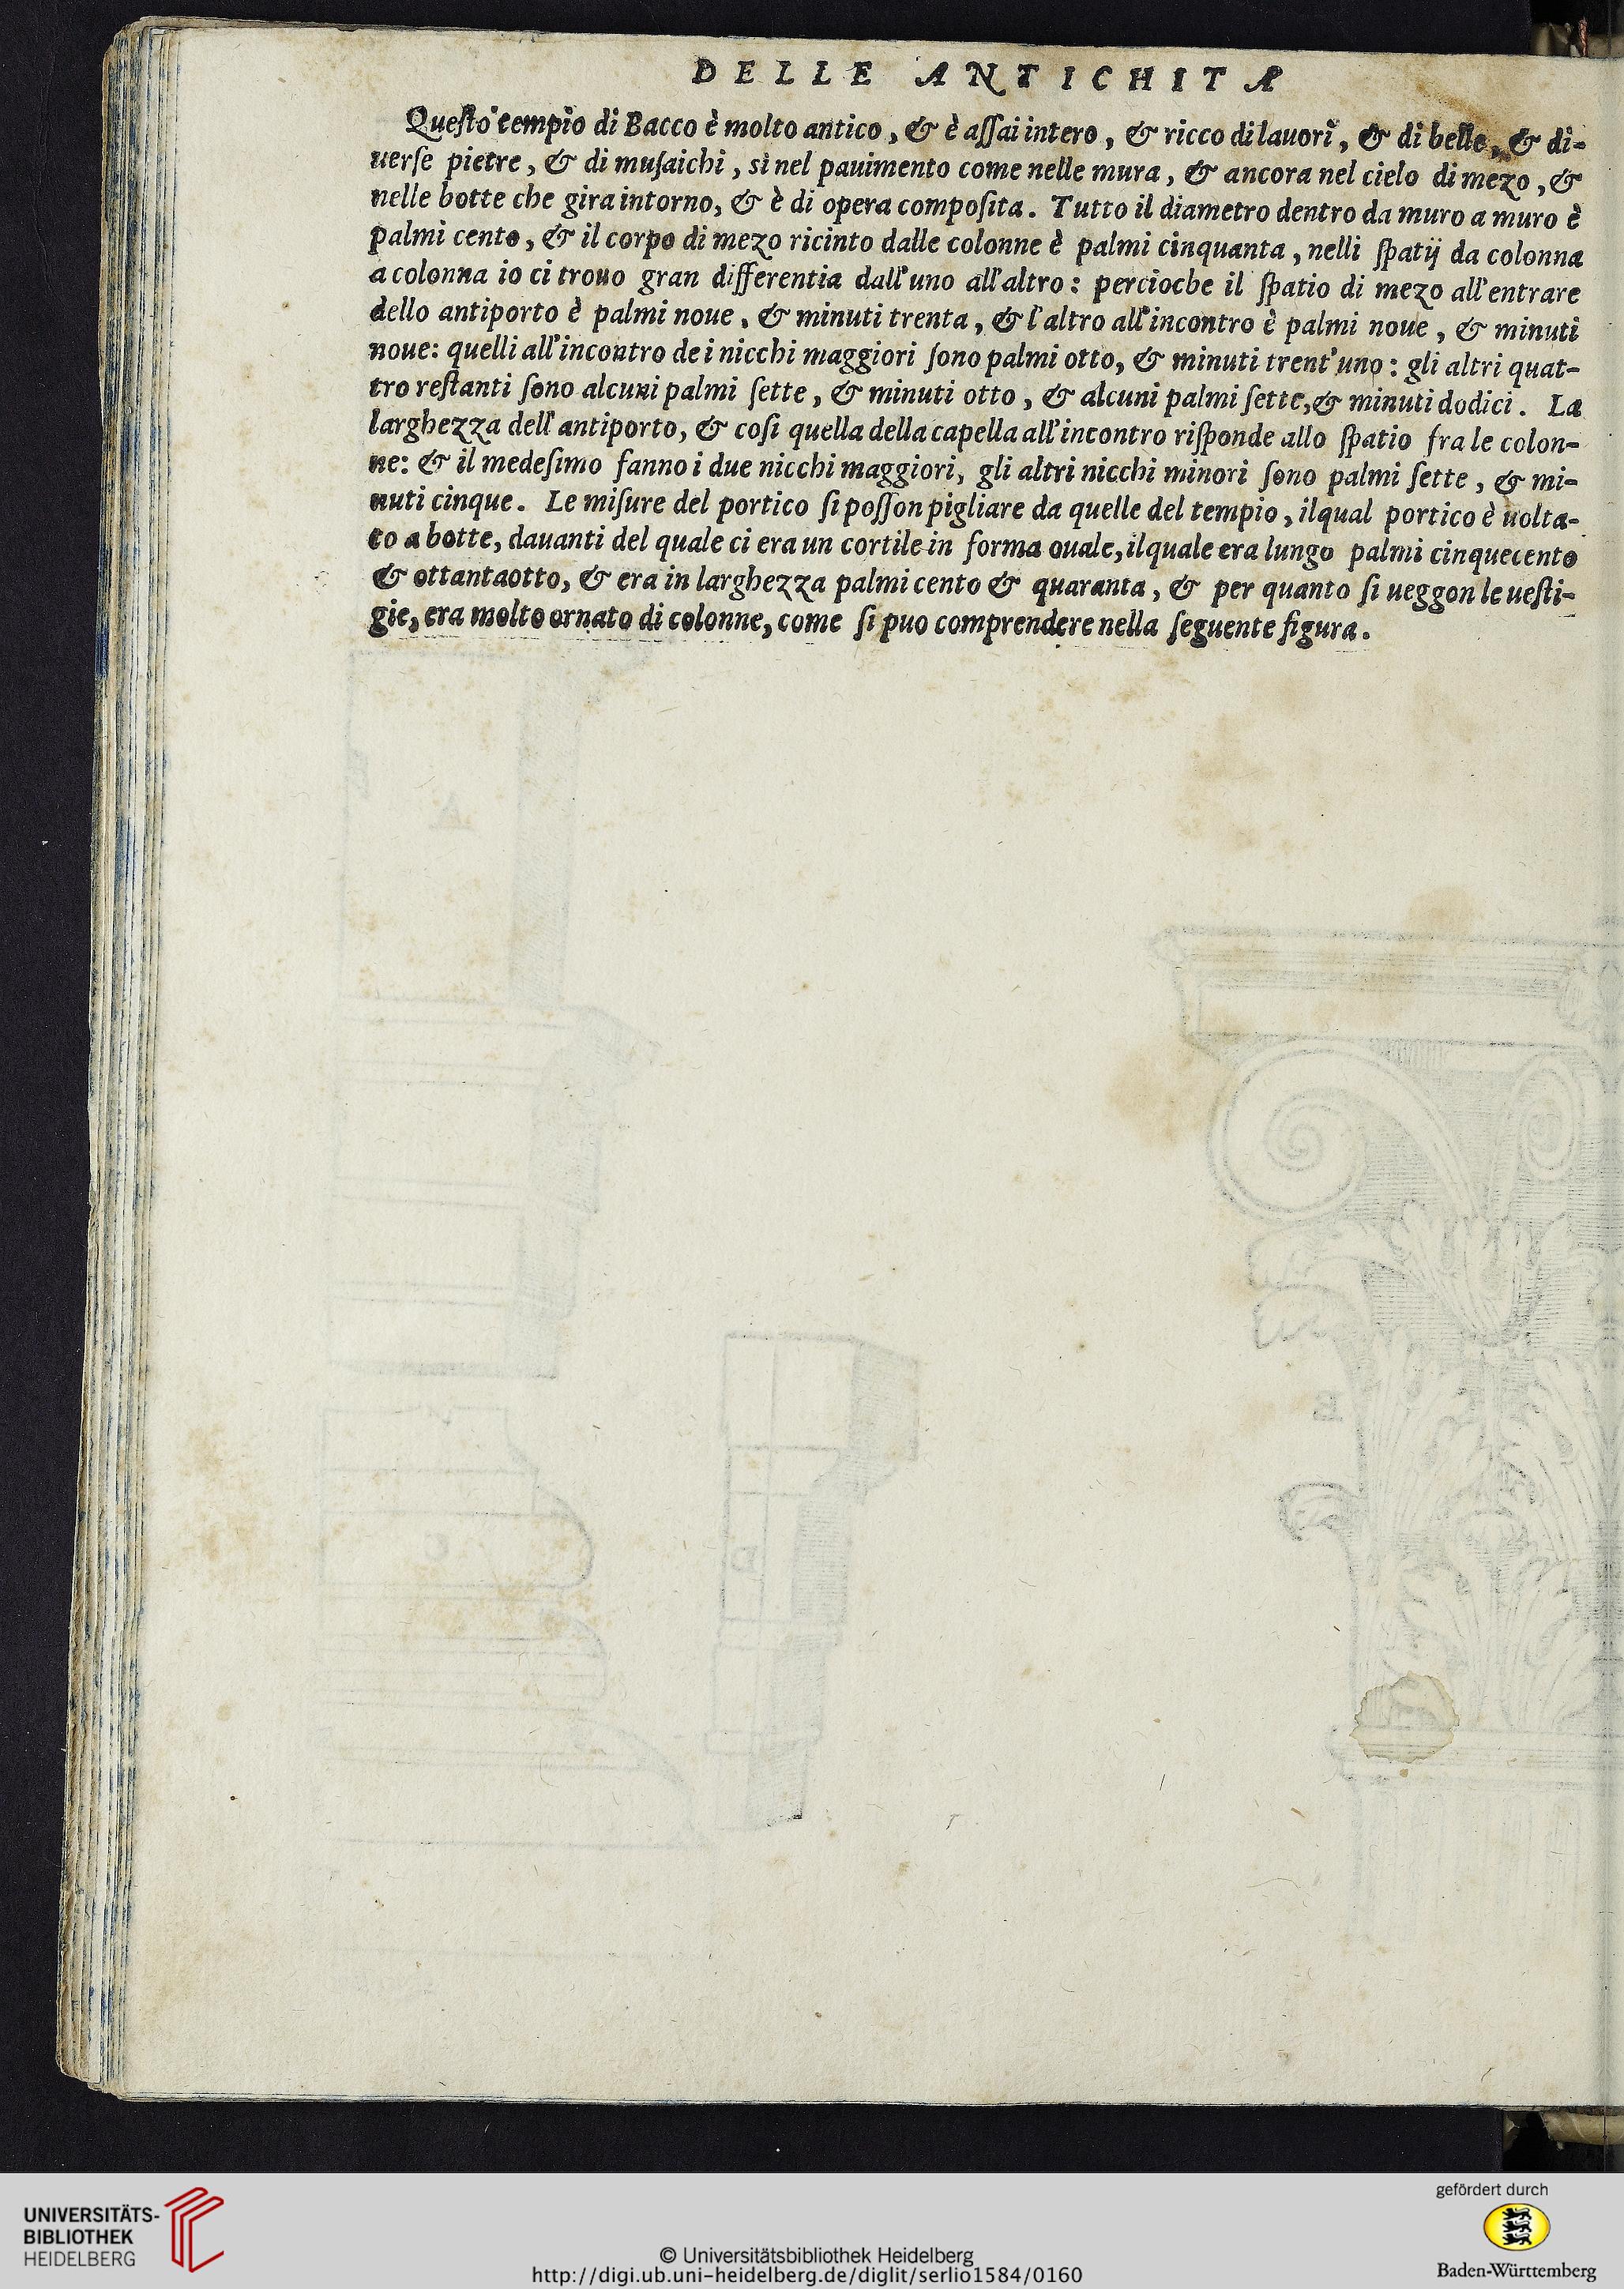 DELLE ANTICHITA
Queſto tempio di Bacco è molto antico, & è aſſai intero, & ricco di lauori, & di belle, & di-
uerſe pietre, & di muſaichi, sì nel pauimento come nelle mura, & ancora nel cielo di mezo, &
nelle botte che gira intorno, & è di opera compoſita. Tutto il diametro dentro da muro a muro è
palmi cento, & il corpo di mezo ricinto dalle colonne è palmi cinquanta, nelli ſpatij da colonna
a colonna io ci trouo gran differentia dall'uno all'altro: percioche il ſpatio di mezo all'entrare
dello antiporto è palmi noue, & minuti trenta, & l'altro all'incontro è palmi noue, & minuti
noue: quelli all'incontro de i nicchi maggiori ſono palmi otto, & minuti trent'uno: gli altri quat-
tro reſtanti ſono alcuni palmi ſette, & minuti otto, & alcuni palmi ſette, & minuti dodici. La
larghezza dell'antiporto, & coſi quella della capella all'incontro riſponde allo ſpatio fra le colon-
ne: & il medeſimo fanno i due nicchi maggiori, gli altri nicchi minori ſono palmi ſette, & mi-
nuti cinque. Le miſure del portico ſi poſſon pigliare da quelle del tempio, ilqual portico è uolta-
to a botte, dauanti del quale ci era un cortile in forma ouale, ilquale era lungo palmi cinquecento
& ottantaotto, & era in larghezza palmi cento & quaranta, & per quanto ſi ueggon le ueſti-
gie, era molto ornato di colonne, come ſi puo comprendere nella ſeguente figura.
UNIVERSITÄTS-
BIBLIOTHEK
HEIDELBERG
© Universitätsbibliothek Heidelberg
http://digi.ub.uni-heidelberg.de/diglit/serlio1584/0160
gefördert durch
Baden-Württemberg